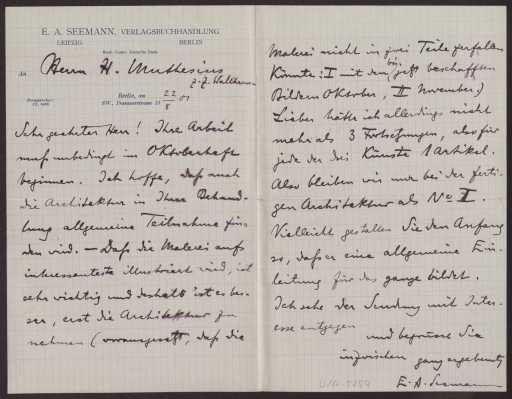 E. A. SEEMANN, VERLAGSBUCHHANDLUNG
LEIPZIG BERLIN
An Herrn H. Muthesius
z. Z.
Berlin, den 22/8 01
SW.,
Sehr geehrter Herr! Ihre Arbeit
muß unbedingt im Oktoberhefte
beginnen. Ich hoffe, daß auch
die Architektur in Ihrer Behand-
lung allgemeine Teilnahme fin-
den wird. — Daß die Malerei aufs
interessanteste illustriert wird, ist
sehr wichtig und deshalb ist es bes-
ser, erst die Architektur zu
nehmen (vorausgesetzt, daß die
Malerei nicht in zwei Teile zerfallen
könnte: I mit den bis jetzt beschafften
Bildern Oktober, II November.)
Lieber hätte ich allerdings nicht
mehr als 3 Fortsetzungen, also für
jede der drei Künste 1 Artikel.
Also bleiben wir nur bei der ferti-
gen Architektur als No I.
Vielleicht gestalten Sie den Anfang
so, daß er eine allgemeine Ein-
leitung für das ganze bildet.
Ich sehe der Sendung mit Inter-
esse entgegen
und begrüsse Sie
inzwischen ganz ergebenst
E. A. Seemann